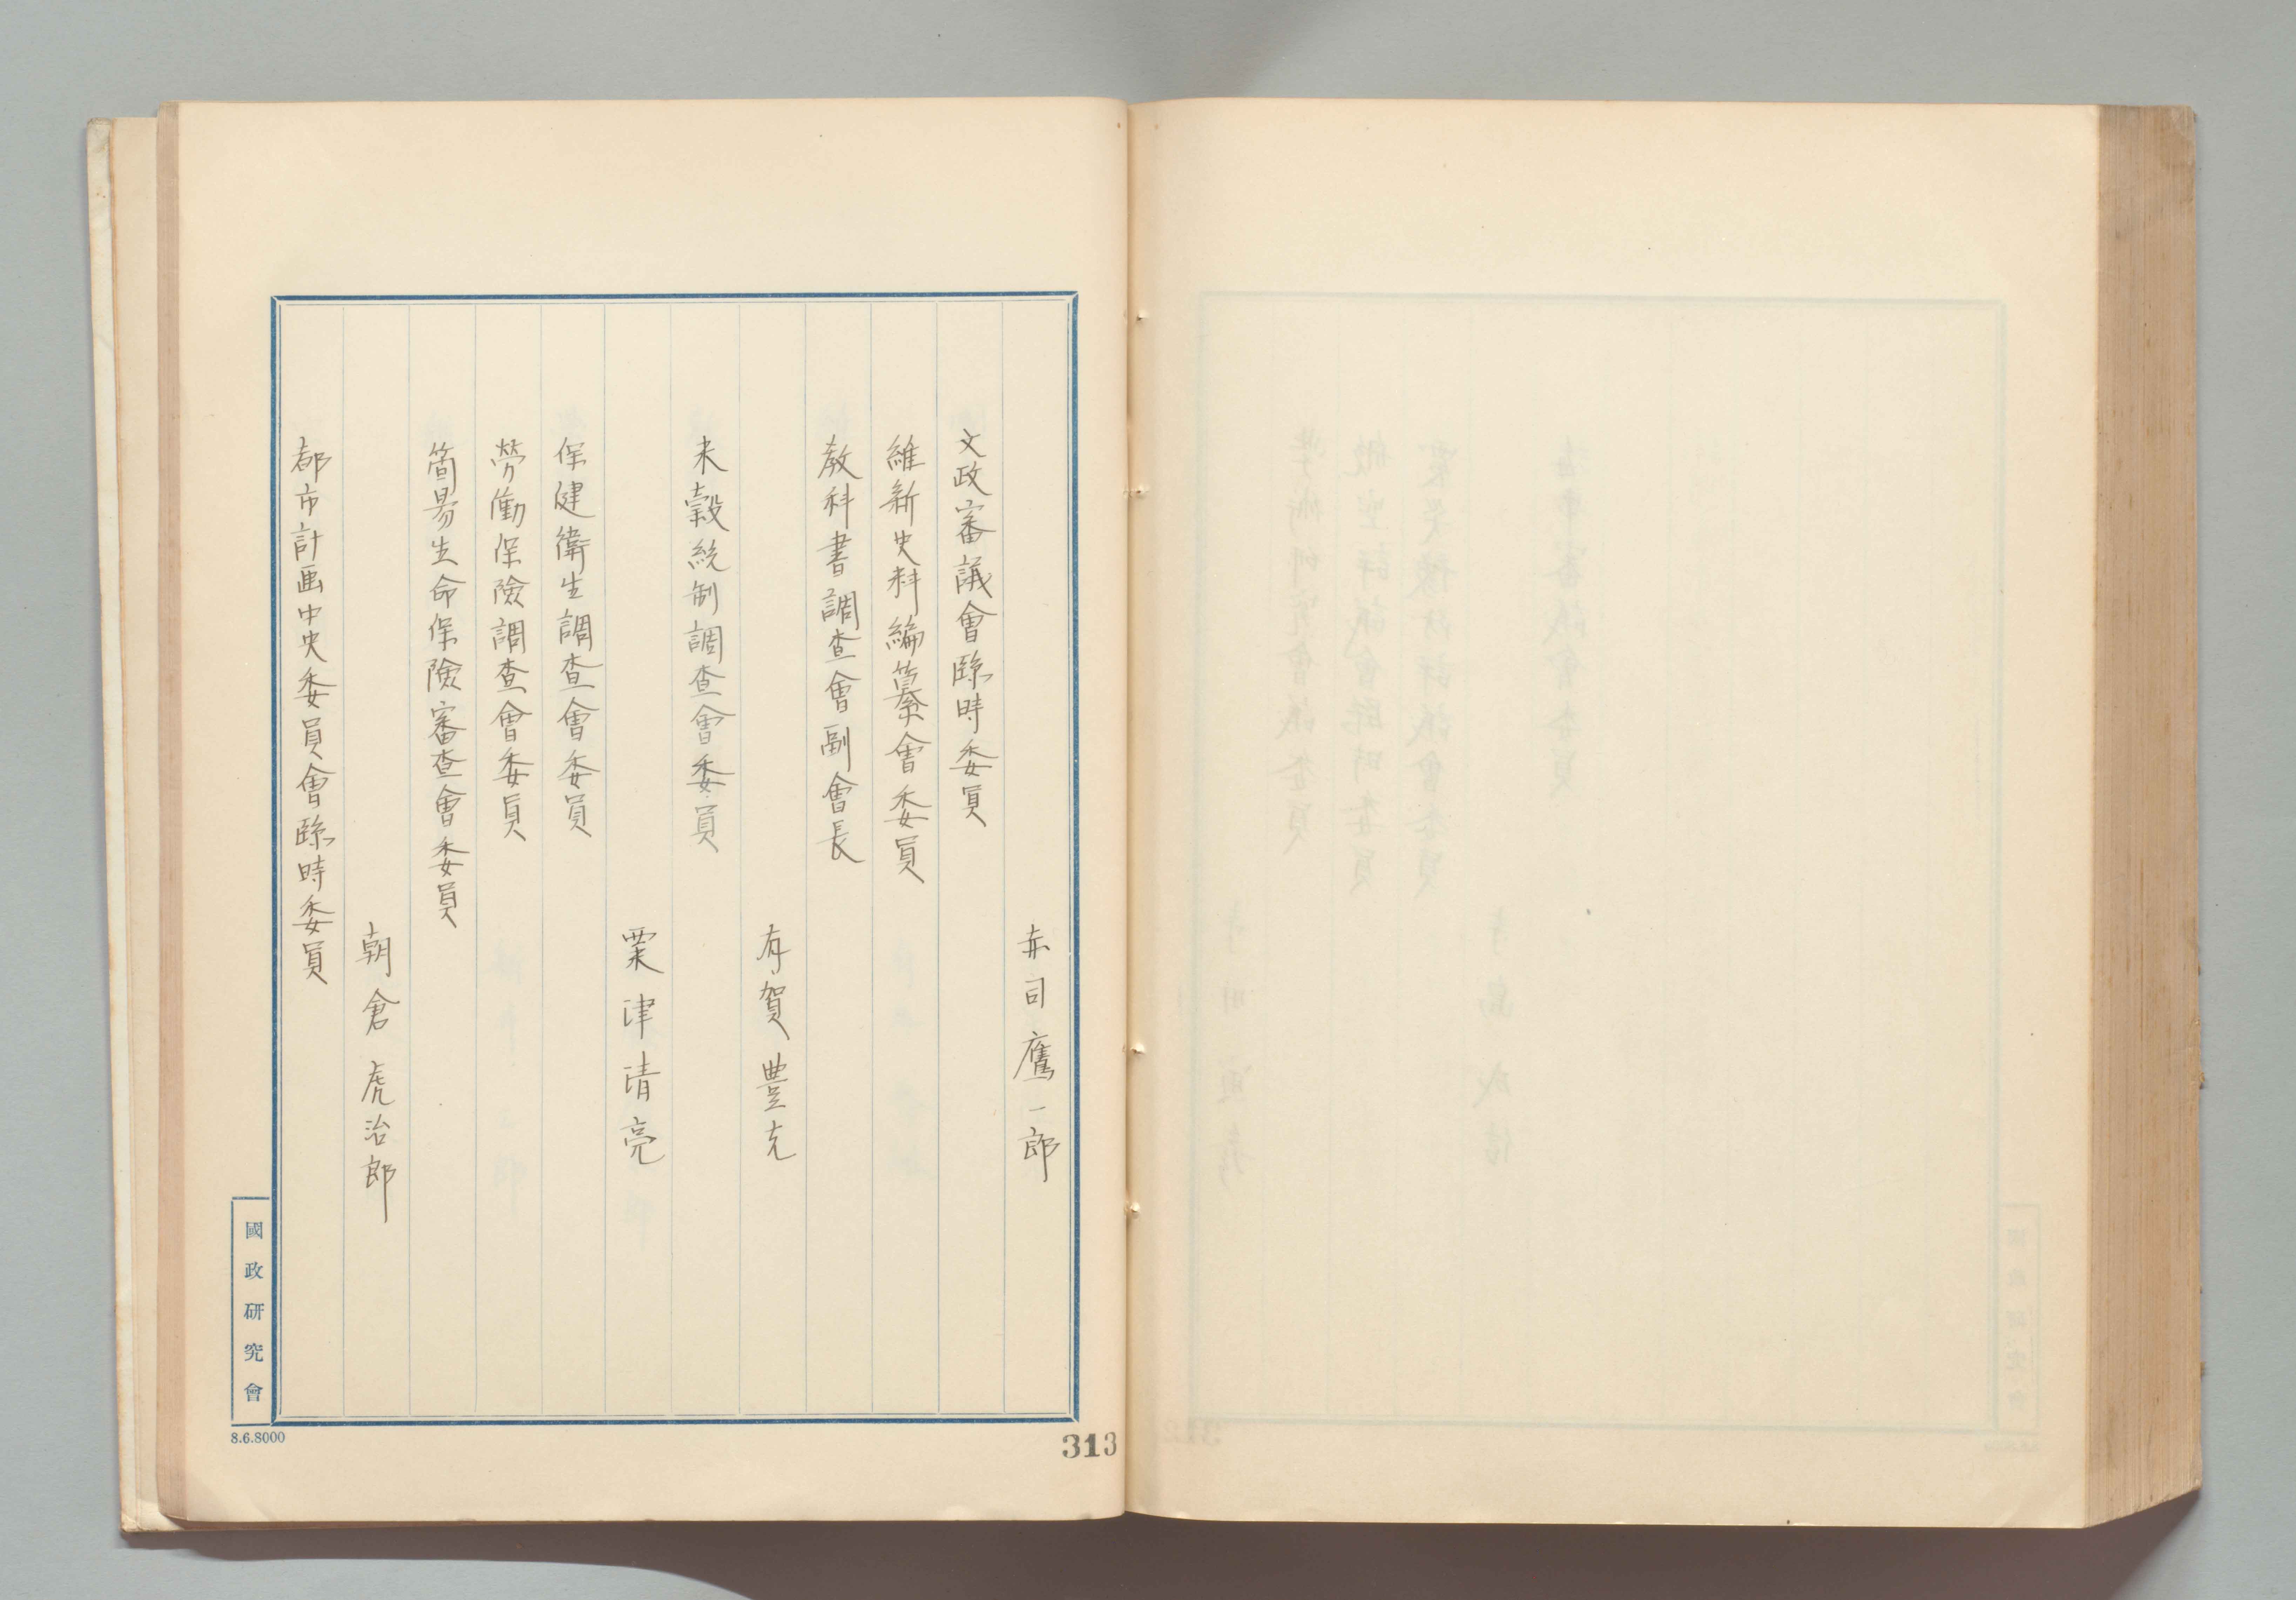 赤司鷹一郎
文政審議會臨時委員
維新史料編纂會委員
教科書調査會副會長
有賀豊克
米穀統制調査會委員
粟津清亮
保健衛生調査會委員
勞働保險調査會委員
簡易生命保險審査會委員
朝倉虎治郎
都市計画中央委員會臨時委員
國政研究會
8.6.8000
313